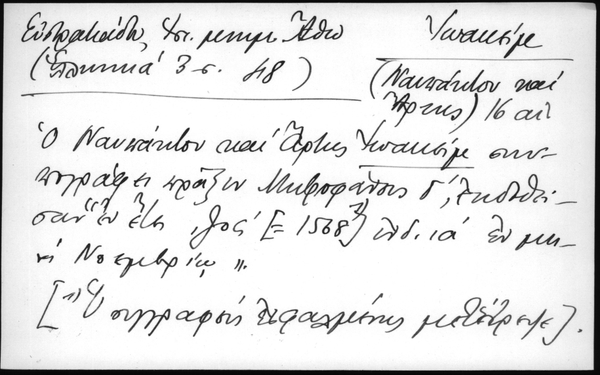 Εὐστρατιάδη, Ἱστ. μνημ. Ἄθω
(Ἑλληνικά 3 σ. 48)
Ἰωακείμ
(Ναυπάκτου καί
Ἄρτης) 16 αἰ
Ὁ Ναυπάκτου καί Ἄρτης Ἰωακείμ συνυ-
πογράφει πρᾶξιν Μητροφάνους δ', ἐκδοθεῖ-
σαν "ἐν ἔτει ͵ζος' [= 1568¹⁾] ἰνδ. ια' ἐν μη-
νί Νοεμβρίῳ".
[¹⁾ Ὁ συγγραφεύς ἐσφαλμένως μετέτρεψε].